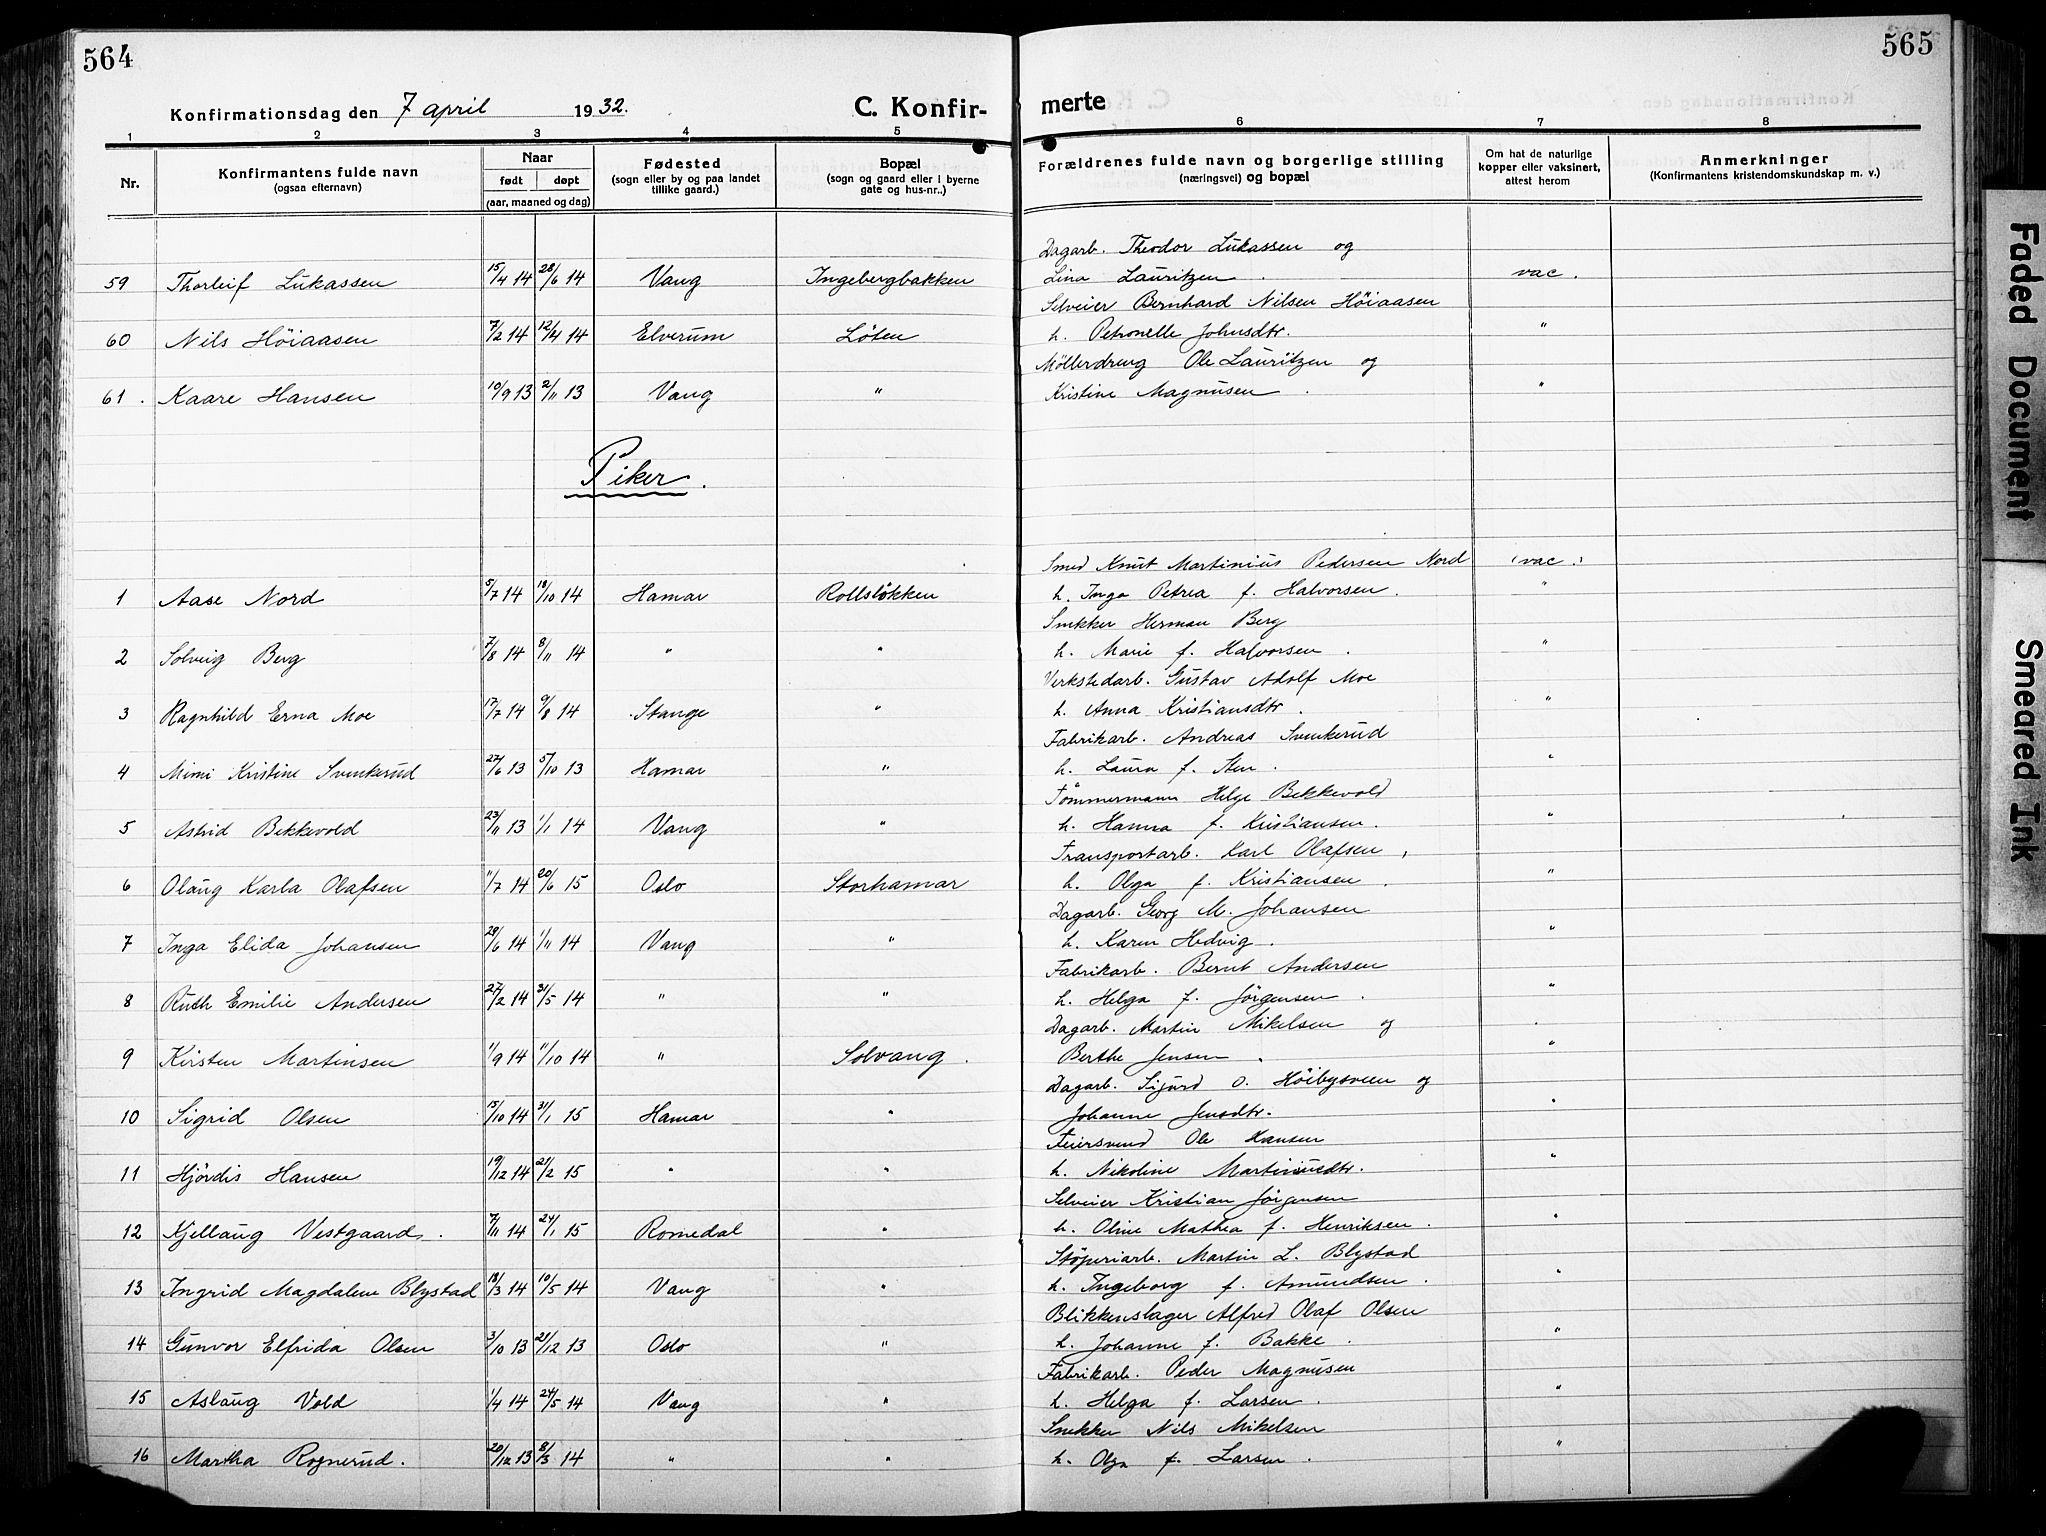 564
565
Konfirmationsdag den 7 april 1932.
C. Konfirmerte
1 2 3 4 5 6 7 8
Nr.
Konfirmantens fulde navn
(ogsaa efternavn)
Naar
født døpt
(aar, maaned og dag)
Fødested
(sogn eller by og paa landet
tillike gaard.)
Bopæl
(sogn og gaard eller i byerne
gate og hus-nr..)
Forældrenes fulde navn og borgerlige stilling
(næringsvei) og bopæl
Om hat de naturlige
kopper eller vaksinert,
attest herom
Anmerkninger
(Konfirmantens kristendomskundskap m. v.)
Dagarb. Theodor Lukassen og
59 Thorleif Lukassen 15/4 14 28/6 14 Vang Ingebergbakken Lina Lauritzen. vac.
Selveier Bernhard Nilsen Höiaasen
60 Nils Höiaasen 7/2 14 12/4 14 Elverum Löten h. Petronelle Johnsdtr. "
Möllerdreng Ole Lauritzen og
61. Kaare Hansen 10/9 13 2/11 13 Vang " Kristine Magnusen. "
Piker.
Smed Knut Martinius Pedersen Nord (vac.)
1 Aase Nord 5/7 14 18/10 14 Hamar Rollslökken h. Inga Petrea f. Halvorsen. "
Snekker Herman Berg
2 Solveig Berg 7/8 14 8/11 14 " " h. Marie f. Halvorsen. "
Verkstedarb. Gustav Adolf Moe
3 Ragnhild Erna Moe 17/7 14 9/8 14 Stange " h. Anna Kristiansdtr. "
Fabrikarb. Andreas Svenkerud
4 Mimi Kristine Svenkerud 27/6 13 5/10 13 Hamar " h. Laura f. Sten. "
Tömmermann Helge Bekkevold
5 Astrid Bekkevold 23/11 13 1/1 14 Vang " h. Hanna f. Kristiansen. "
Transportarb. Karl Olafsen,
6 Olaug Karla Olafsen 11/7 14 20/6 15 Oslo Storhamar h. Olga f. Kristiansen. "
Dagarb. Georg M. Johansen
7 Inga Elida Johansen 28/6 14 1/11 14 Vang " h. Karen Hedvig. "
Fabrikarb. Bernt Andersen
8 Ruth Emilie Andersen 27/2 14 31/5 14 " " h. Helga f. Jörgensen. "
Dagarb. Martin Mikelsen og
9 Kirsten Martinsen 1/9 14 11/10 14 " Solvang. Berthe Jensen. "
Dagarb. Sigurd O. Höibysveen og
10 Sigrid Olsen 15/10 14 31/1 15 Hamar " Johanne Jensdtr. "
Feiersvend Ole Hansen
11 Hjördis Hansen 19/12 14 21/2 15 " " h. Nikoline Martinusdtr. "
Selveier Kristian Jörgensen
12 Kjellaug Vestgaard. 7/11 14 24/1 15 Romedal " h. Oline Mathea f. Henriksen. "
Stöperiarb. Martin L. Blystad
13 Ingrid Magdalene Blystad 18/3 14 10/5 14 Vang " h. Ingeborg f. Amundsen. "
Blikkenslager Alfred Olaf Olsen
14 Gunvor Elfrida Olsen 3/10 13 21/12 13 Oslo " h. Johanne f. Bakke. "
Fabrikarb. Peder Magnusen
15 Aslaug Vold 1/4 14 24/5 14 Vang " h. Helga f. Larsen. "
Snekker Nils Mikelsen
16 Martha Rognerud. 20/12 13 8/3 14 " " h. Olga f. Larsen. "
Faded Document
Smeared Ink